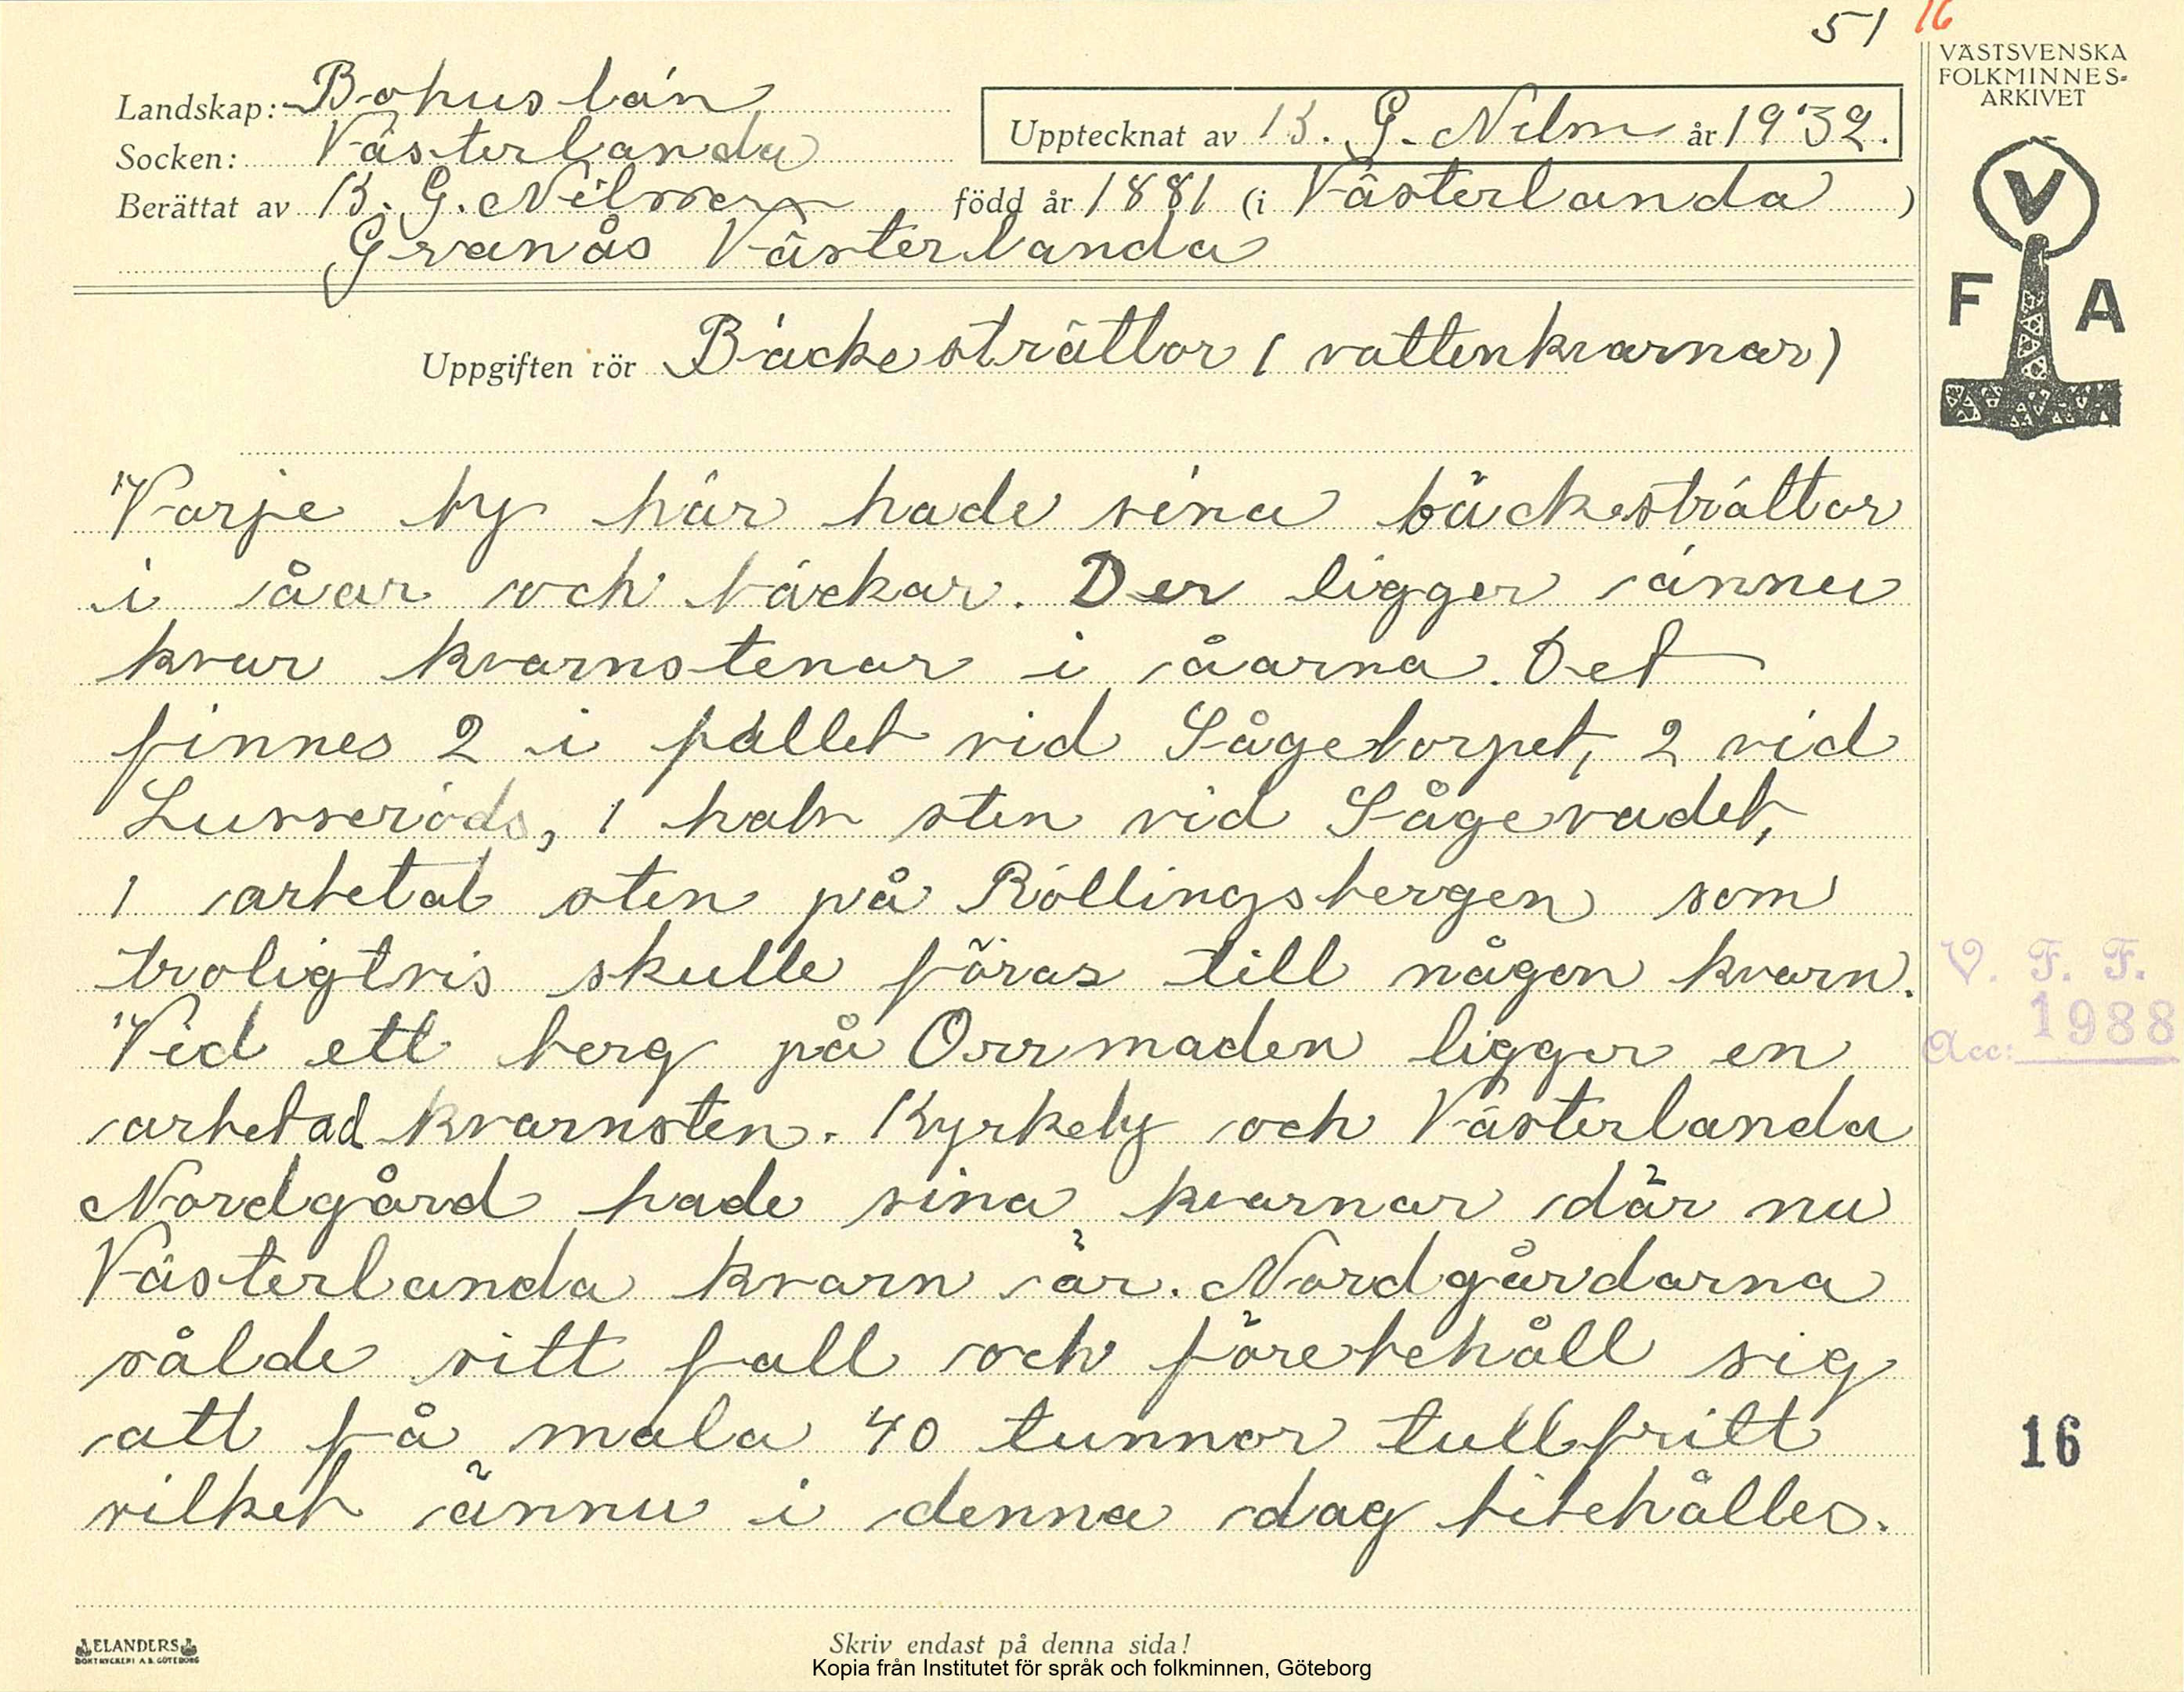 51 16
VÄSTSVENSKA
FOLKMINNES-
ARKIVET
Landskap: Bohuslän
Socken: Västerlanda
Upptecknat av K. G. Nilm år 1932.
Berättat av K. G. Nilsson född år 1881 (i Västerlanda )
Granås Västerlanda
V
F A
Uppgiften rör Bäckeskrättlor ( vattenkvarnar)
Varje by här hade sina bäckesträltor
i åar och bäckar. Der ligger ännu
kvar kvarnstenar i åarna. Det
finnes 2 i fallet vid Sågetorpet, 2 vid
Lusseröds, 1 halv sten vid Sågevadet,
1 arbetat sten på Röllingsbergen som
troligtvis skulle föras till någon kvarn.
Vid ett berg på Orrmaden ligger en
arbetad kvarnsten. Kyrkeby och Västerlanda
Nordgård hade sina kvarnar där nu
Västerlanda kvarn är. Nordgårdarna
sålde sitt fall och förebehåll sig
att få mala 40 tunnor tullfritt
vilket ännu i denna dag bibehålles.
V. F. F.
Acc: 1988
16
ELANDERS
BOKTRYCKERI A.B. GÖTEBORG
Skriv endast på denna sida!
Kopia från Institutet för språk och folkminnen, Göteborg